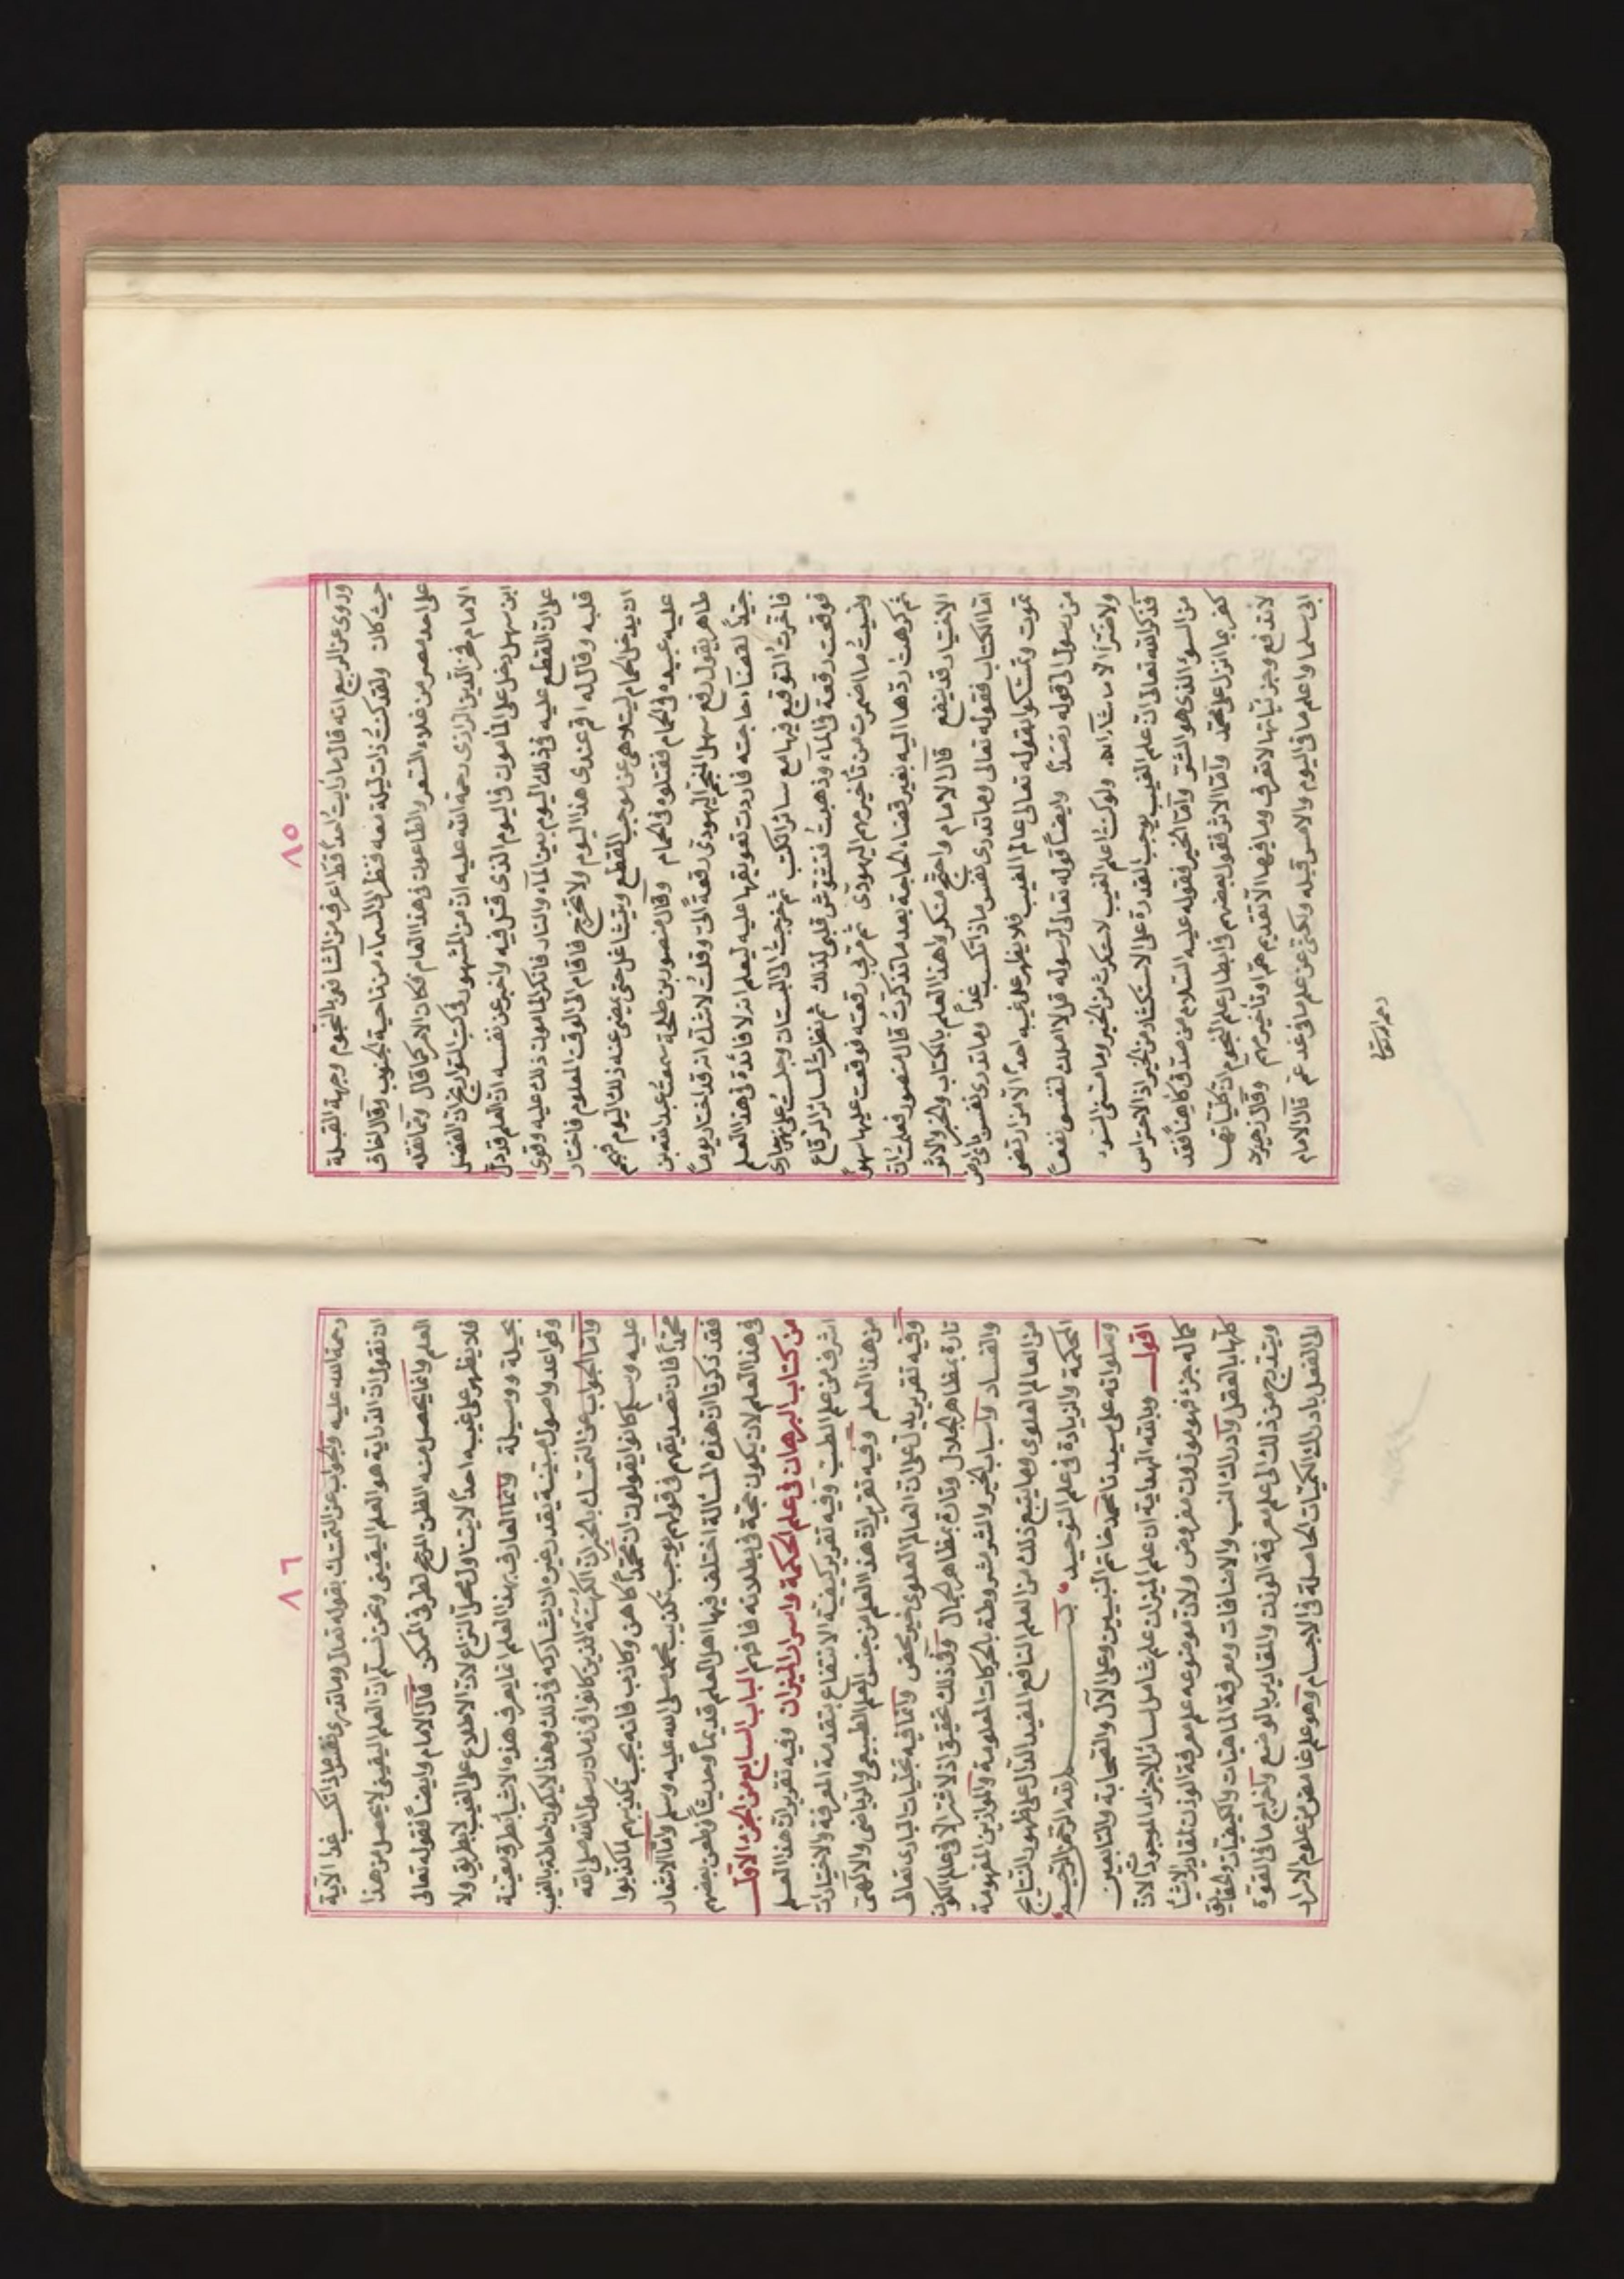 ٨٥
وروى عن الربيع انه قال ما رأيت احداً قط اعرف من الشافعي بالنجوم وجهة القبلة
حيث كان ولقد كنت ذات ليلة معه فنظر الى السماء من ناحية الجنوب وقال اخاف
على احد بمصر من غلاء السعر والطاعون في هذا العام فكان الامر كما قال ومما نقله
الامام فخر الدين الرازي رحمة الله عليه ان من المشهور في كتب التواريخ ان الفضل
ابن سهل دخل على المأمون في اليوم الذي قتل فيه واخبر عن نفسه ان العلم قد دل
على ان القطع عليه في ذلك اليوم بين الماء والنار فانكر المأمون ذلك عليه وقوى
قلبه وقال له اقم عندي هذا اليوم ولا تخرج فاقام الى الوقت المعلوم فاختار
ان يدخل الحمام ليتلاهى عن موجب القطع ويتشاغل حتى يمضى عنه ذلك اليوم فهجم
عليه عبيده في الحمام فقتلوه في الحمام وقال منصور بن طلحة سمعت عبد الله بن
طاهر يقول رفع سهل المنجم اليهودي رقعة الىّ وقلت لا شك انه قد اختار يوماً
جيداً لقضاء حاجته فاردت تعويقها عليه ليعلم انه لا فائدة في هذا العلم
فاخرت التوقيع فيها مع سائر الكتب ثم خرجت الى البستان وجلست على نهر جارى
فوقعت رقعة في الماء وذهبت فتشوش قلبي لذلك ثم نظرت لسائر الرقاع
ونسيت ما اضمرت من تأخير مهم اليهودي ثم مر بي رقعته فوقعت عليها سهواً
ثم كرهت ردها اليه بغير قضاء الحاجة بعد ما تذكرت قال منصور فعلمت ان
الاختيار قد ينفع قال الامام واحتج منكروا هذا العلم بالكتاب والخبر والاثر
اما الكتاب فقوله تعالى وما تدرى نفس ماذا تكسب غداً وما تدرى نفس باى ارض
تموت وتمسكوا بقوله تعالى عالم الغيب فلا يظهر على غيبه احداً الا من ارتضى
من رسول الى قوله رصداً وايضاً قوله تعالى لرسوله قل لا املك لنفسي نفعاً
ولا ضراً الا ما شاء الله ولو كنت اعلم الغيب لاستكثرت من الخير وما مسني السوء
فذكر الله تعالى ان علم الغيب يوجب القدرة على الاستكثار من الخير اذ الاحتراس
من السوء الذي هو الشر واما الخبر فقوله عليه السلام من صدق كاهناً فقد
كفر بما انزل على محمد واما الاثر فقول بعضهم في ابطال علم النجوم ان كلياتها
لا تدفع وجزئياتها لا تعرف وما فيها الا تقديم هم او تأخير مهم وقال زهير بن
ابى سلمى واعلم ما في اليوم والامس قبله ولكنى عن علم ما في غد عم قال الامام
رحمة الله
٨٦
رحمة الله عليه والجواب عن التمسك بقوله تعالى وما تدرى نفس ماذا تكسب غدا الآية
ان نقول ان الدراية هو العلم اليقيني ونحن نسلم ان العلم اليقيني لا يحصل من هذا
العلم وانما يحصل منه الظن المرجح لطرفي الممكن قال الامام وايضاً فقوله تعالى
فلا يظهر على غيبه احداً لا يتناول محل النزاع لان الاطلاع على الغيب لا بطريق ولا
بحيلة ووسيلة وانما العارف بهذا العلم انما يعرف هذه الاشياء بطرق معينة
وقواعد واصول مبينة يقدر غيره ان يشاركه في ذلك وهذا لا يكون احاطة بالغيب
واما الجواب عن التمسك بالخبر ان الكهنة الذين كانوا في زمان رسول الله صلى الله
عليه وسلم كانوا يقولون ان محمداً كاهن وكاذب فانه يجب تكذيبهم لما كذبوا
محمداً فان تصديقهم في قولهم يوجب تكذيب محمد صلى الله عليه وسلم واما الاشعار
فقد ذكرنا ان هذه المسألة اختلف فيها اهل العلم قديماً وحديثاً وطعن بعضهم
في هذا العلم لان يكون حجة في بطلانه فافهم الباب السابع من الجزء الاول
من كتاب البرهان في علم الحكمة واسرار الميزان وفيه تقرير ان هذا العلم
اشرف من علم الطب وفيه تقرير كيفية الانتفاع بتقدمة المعرفة والاختيارات
من هذا العلم وفيه تقرير ان هذا العلم من جنس العلم الطبيعي والرياضي والالهى
وفيه تقرير يدل على ان العالم العلوى خير محض وانما فيه تجليات البارى تعالى
تارة بمظاهر الجلال وتارة بمظاهر الجمال وفي ذلك تحقيق اذ لا شر الا في علم الكون
والفساد واسباب الخير والشر مشروطة بالحركات المعلومة والموازين المفهومة
من العالم العلوى وما يتبع ذلك من العلم النافع المفيد الدال على ظهور النتايج
الحكمة والزيادة في علم التوحيد بسم الله الرحمن الرحيم
وصلواته على سيدنا محمد خاتم النبيين وعلى الآل والصحابة والتابعين
اقول وبالله الهداية ان علم الميزان علم شامل لسائر الاجزاء الموجودات لان
كماله جزء فهو موزون مفروض ولان موضوعه علم معرفة الوزن لمقادير الاشياء
كلها بالعقل وادراك النسب والاضافات ومعرفة الماهيات والكيفيات والحقايق
ويتدرج من ذلك الى علم معرفة الوزن والمقادير بالوضع واخراج ما في القوة
الى الفعل بادراك الكميات الحاصلة في الاجسام وهو علم غامض من علوم الاسرار